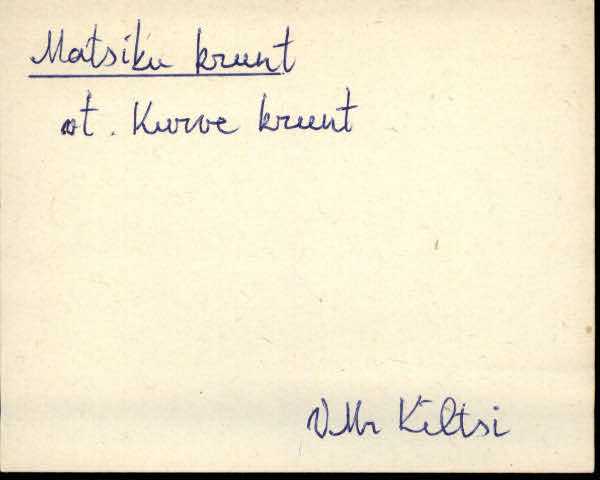 Matsiku krunt
vt. Kurve krunt
VMr Kiltsi